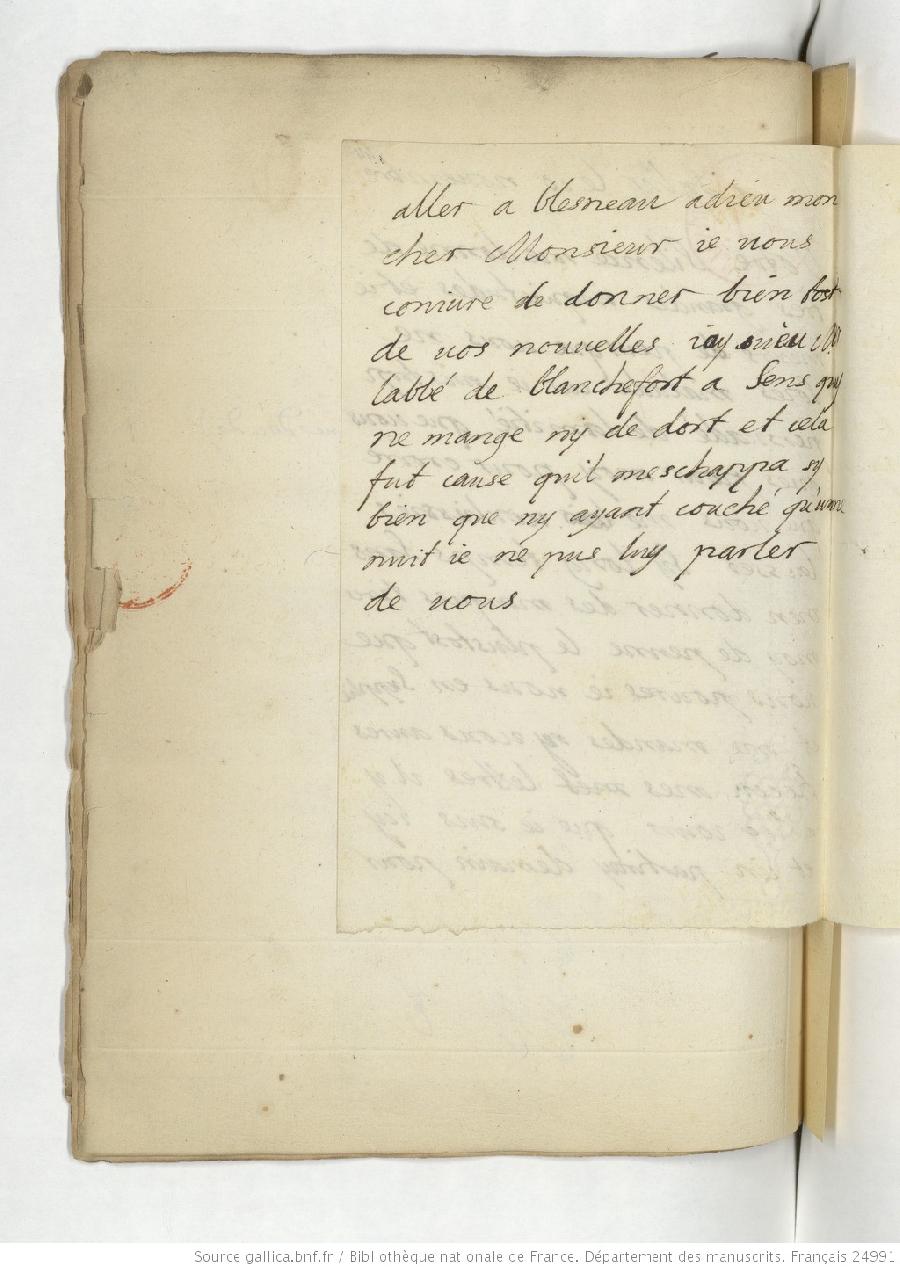 aller a blesneau adieu mon
cher Monsieur ie uous
coniure de donner bien tost
de uos nouuelles iay ueu Mr
labbé de blanchefort a Sens quy
ne mange ny de dort et cela
fut cause quil meschappa sy
bien que ny ayant couché qu'une
nuit ie ne pus luy parler
de uous
Source gallica.bnf.fr / Bibliothèque nationale de France. Département des manuscrits. Français 24991